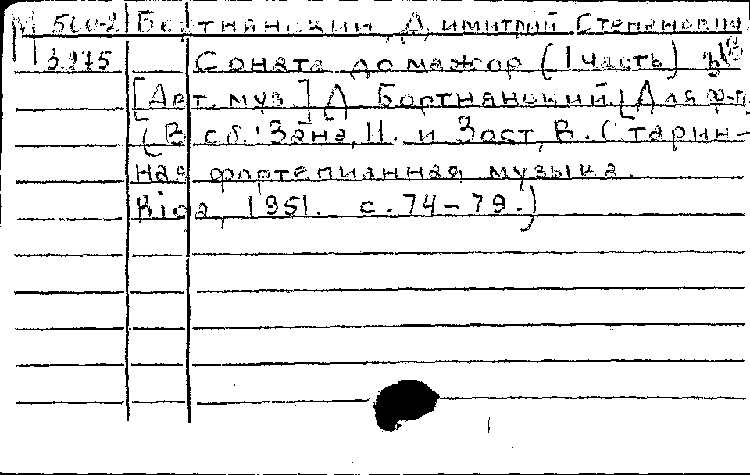 М 560-2 Бортнянский, Дмитрий Степанович
3275 Соната до мажор (1 часть)
[Авт. муз.] Д. Бортнянский. [Для ф-п.
(В сб.: Зане, П. и Зост, В. Старин-
ная фортепианная музыка.
Riga, 1951. с. 74-79.)